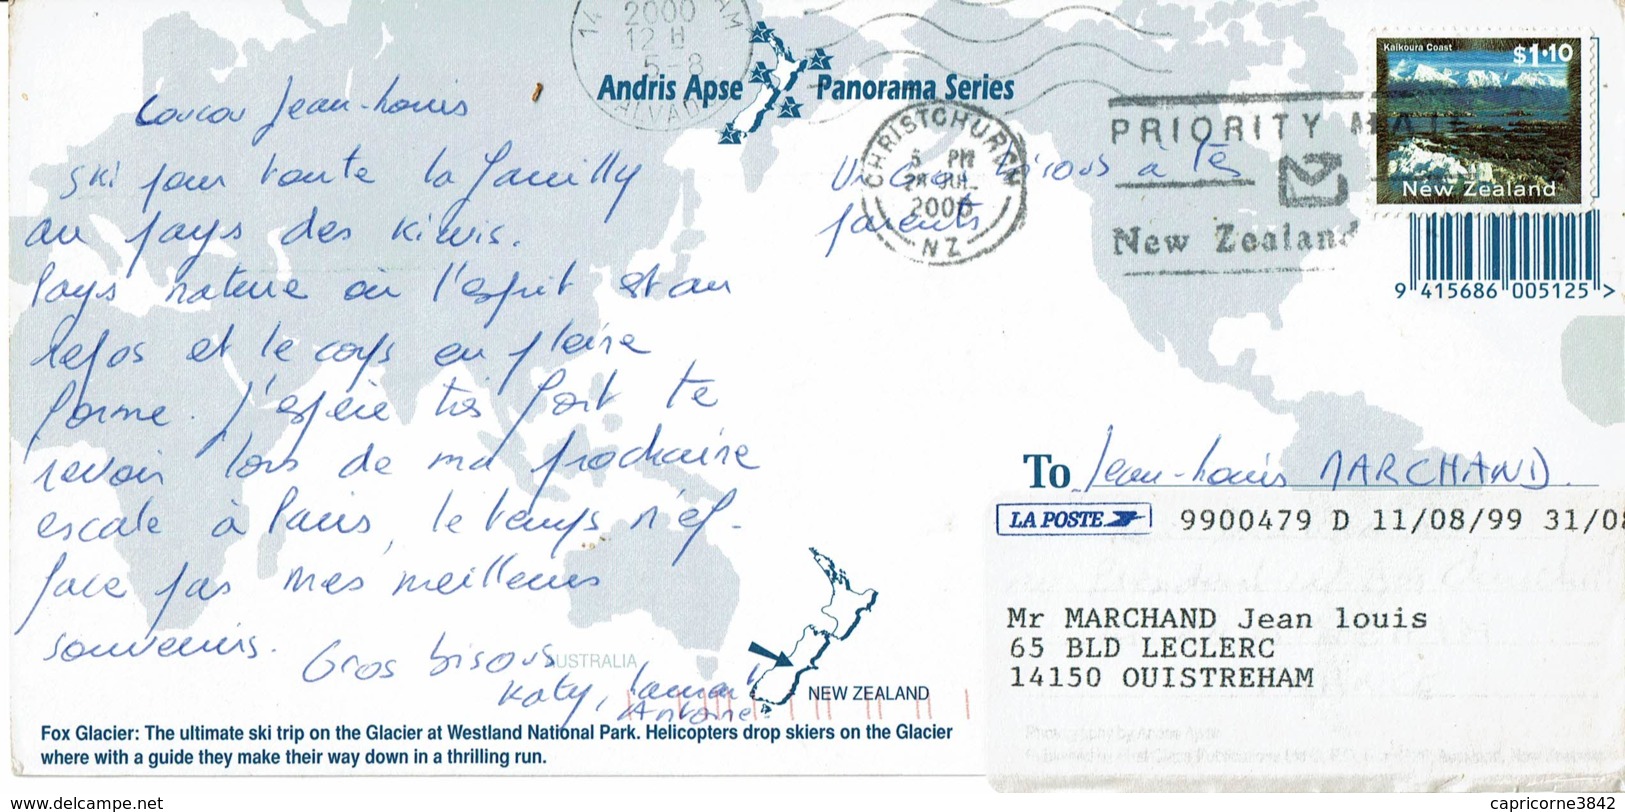 14 AM
2000
12 H
5-8
CALVADOS
Andris Apse Panorama Series
Coucou Jean-Louis
Ski pour toute la familly
au pays des kiwis.
Pays nature où l'esprit est au
repos et le corps en pleine
forme. J'espère très fort te
revoir lors de ma prochaine
escale à Paris, le temps n'ef-
face pas mes meilleurs
souvenirs.
Gros bisous
Katy,
Antoine
Un gros bisous à tes
parents
CHRISTCHURCH
5 PM
JUL
2000
NZ
PRIORITY MAIL
New Zealand
Kaikoura Coast
$1.10
New Zealand
9 415686 005125 >
To Jean-Louis MARCHAND
LA POSTE 9900479 D 11/08/99 31/08
Mr MARCHAND Jean louis
65 BLD LECLERC
14150 OUISTREHAM
AUSTRALIA
NEW ZEALAND
Fox Glacier: The ultimate ski trip on the Glacier at Westland National Park. Helicopters drop skiers on the Glacier
where with a guide they make their way down in a thrilling run.
Photography by Andris Apse
capricorne3842